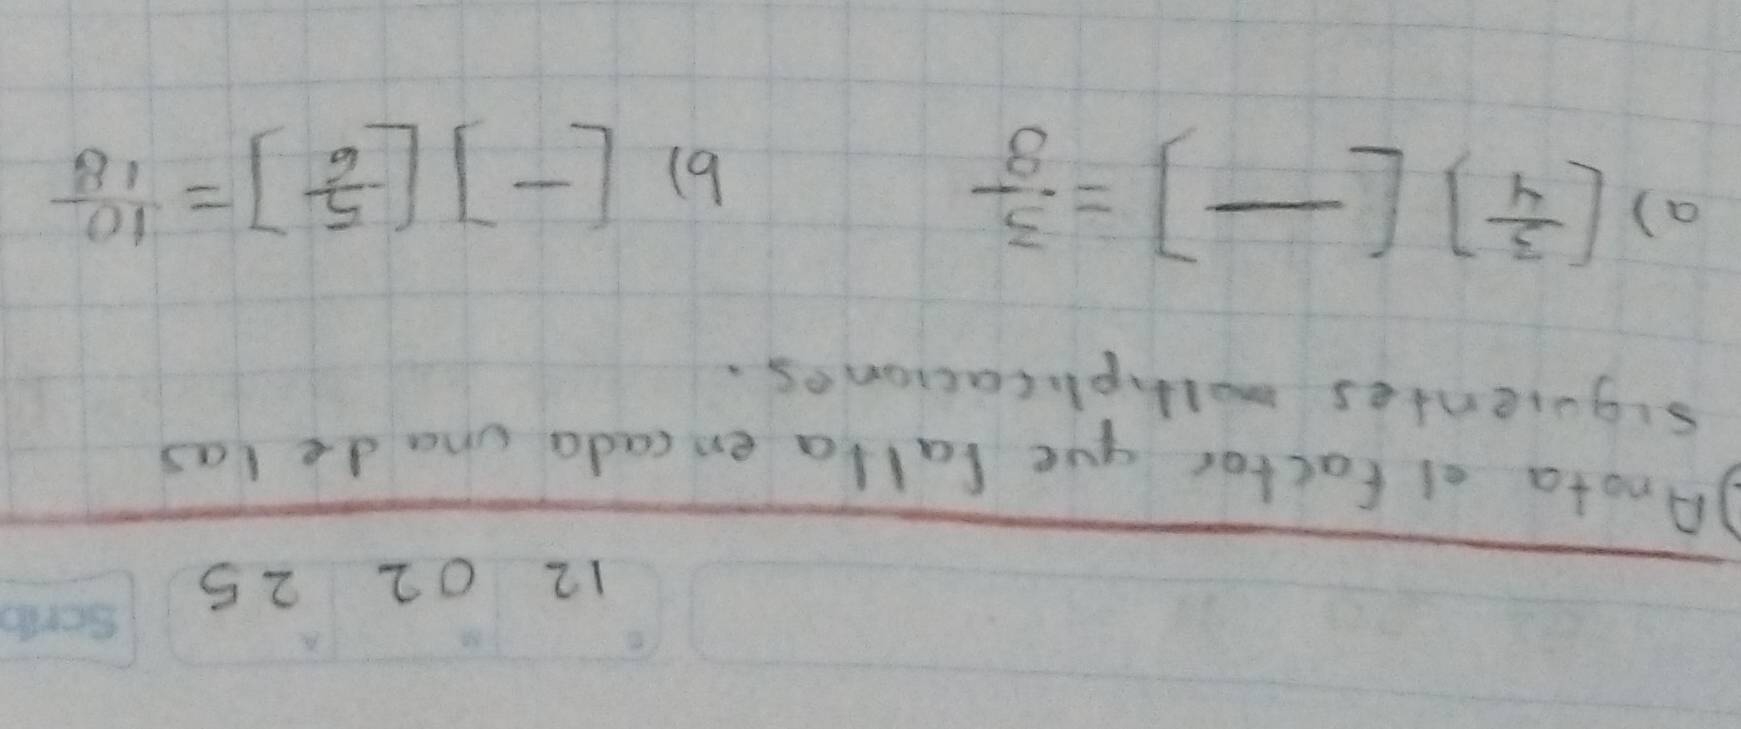 Scrib
12 02 25
Anota el factor que falta en cada una de las
siguientes multiplicaciones.
a) [3/4] [—] = 3/8 b) [—] [5/6] = 10/18